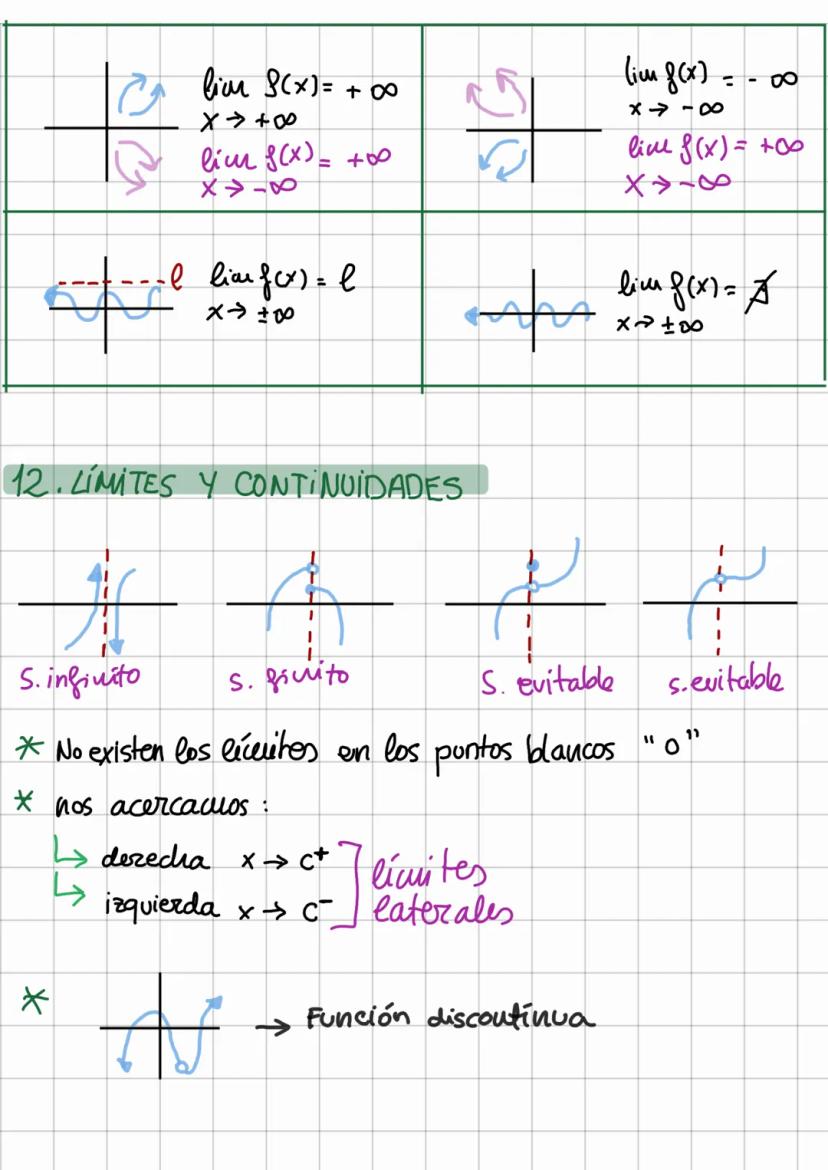 lim f(x) = +∞
x → +∞
lim f(x) = +∞
x → -∞
lim f(x) = -∞
x → -∞
lim f(x) = +∞
x → -∞
l
lim f(x) = l
x → ±∞
lim f(x) = ∄
x → ±∞
12. LÍMITES Y CONTINUIDADES
S. infinito
s. finito
S. evitable
s. evitable
* No existen los límites en los puntos blancos "o"
* nos acercamos:
↳ derecha x → c⁺
↳ izquierda x → c⁻
límites
laterales
* → Función discontínua